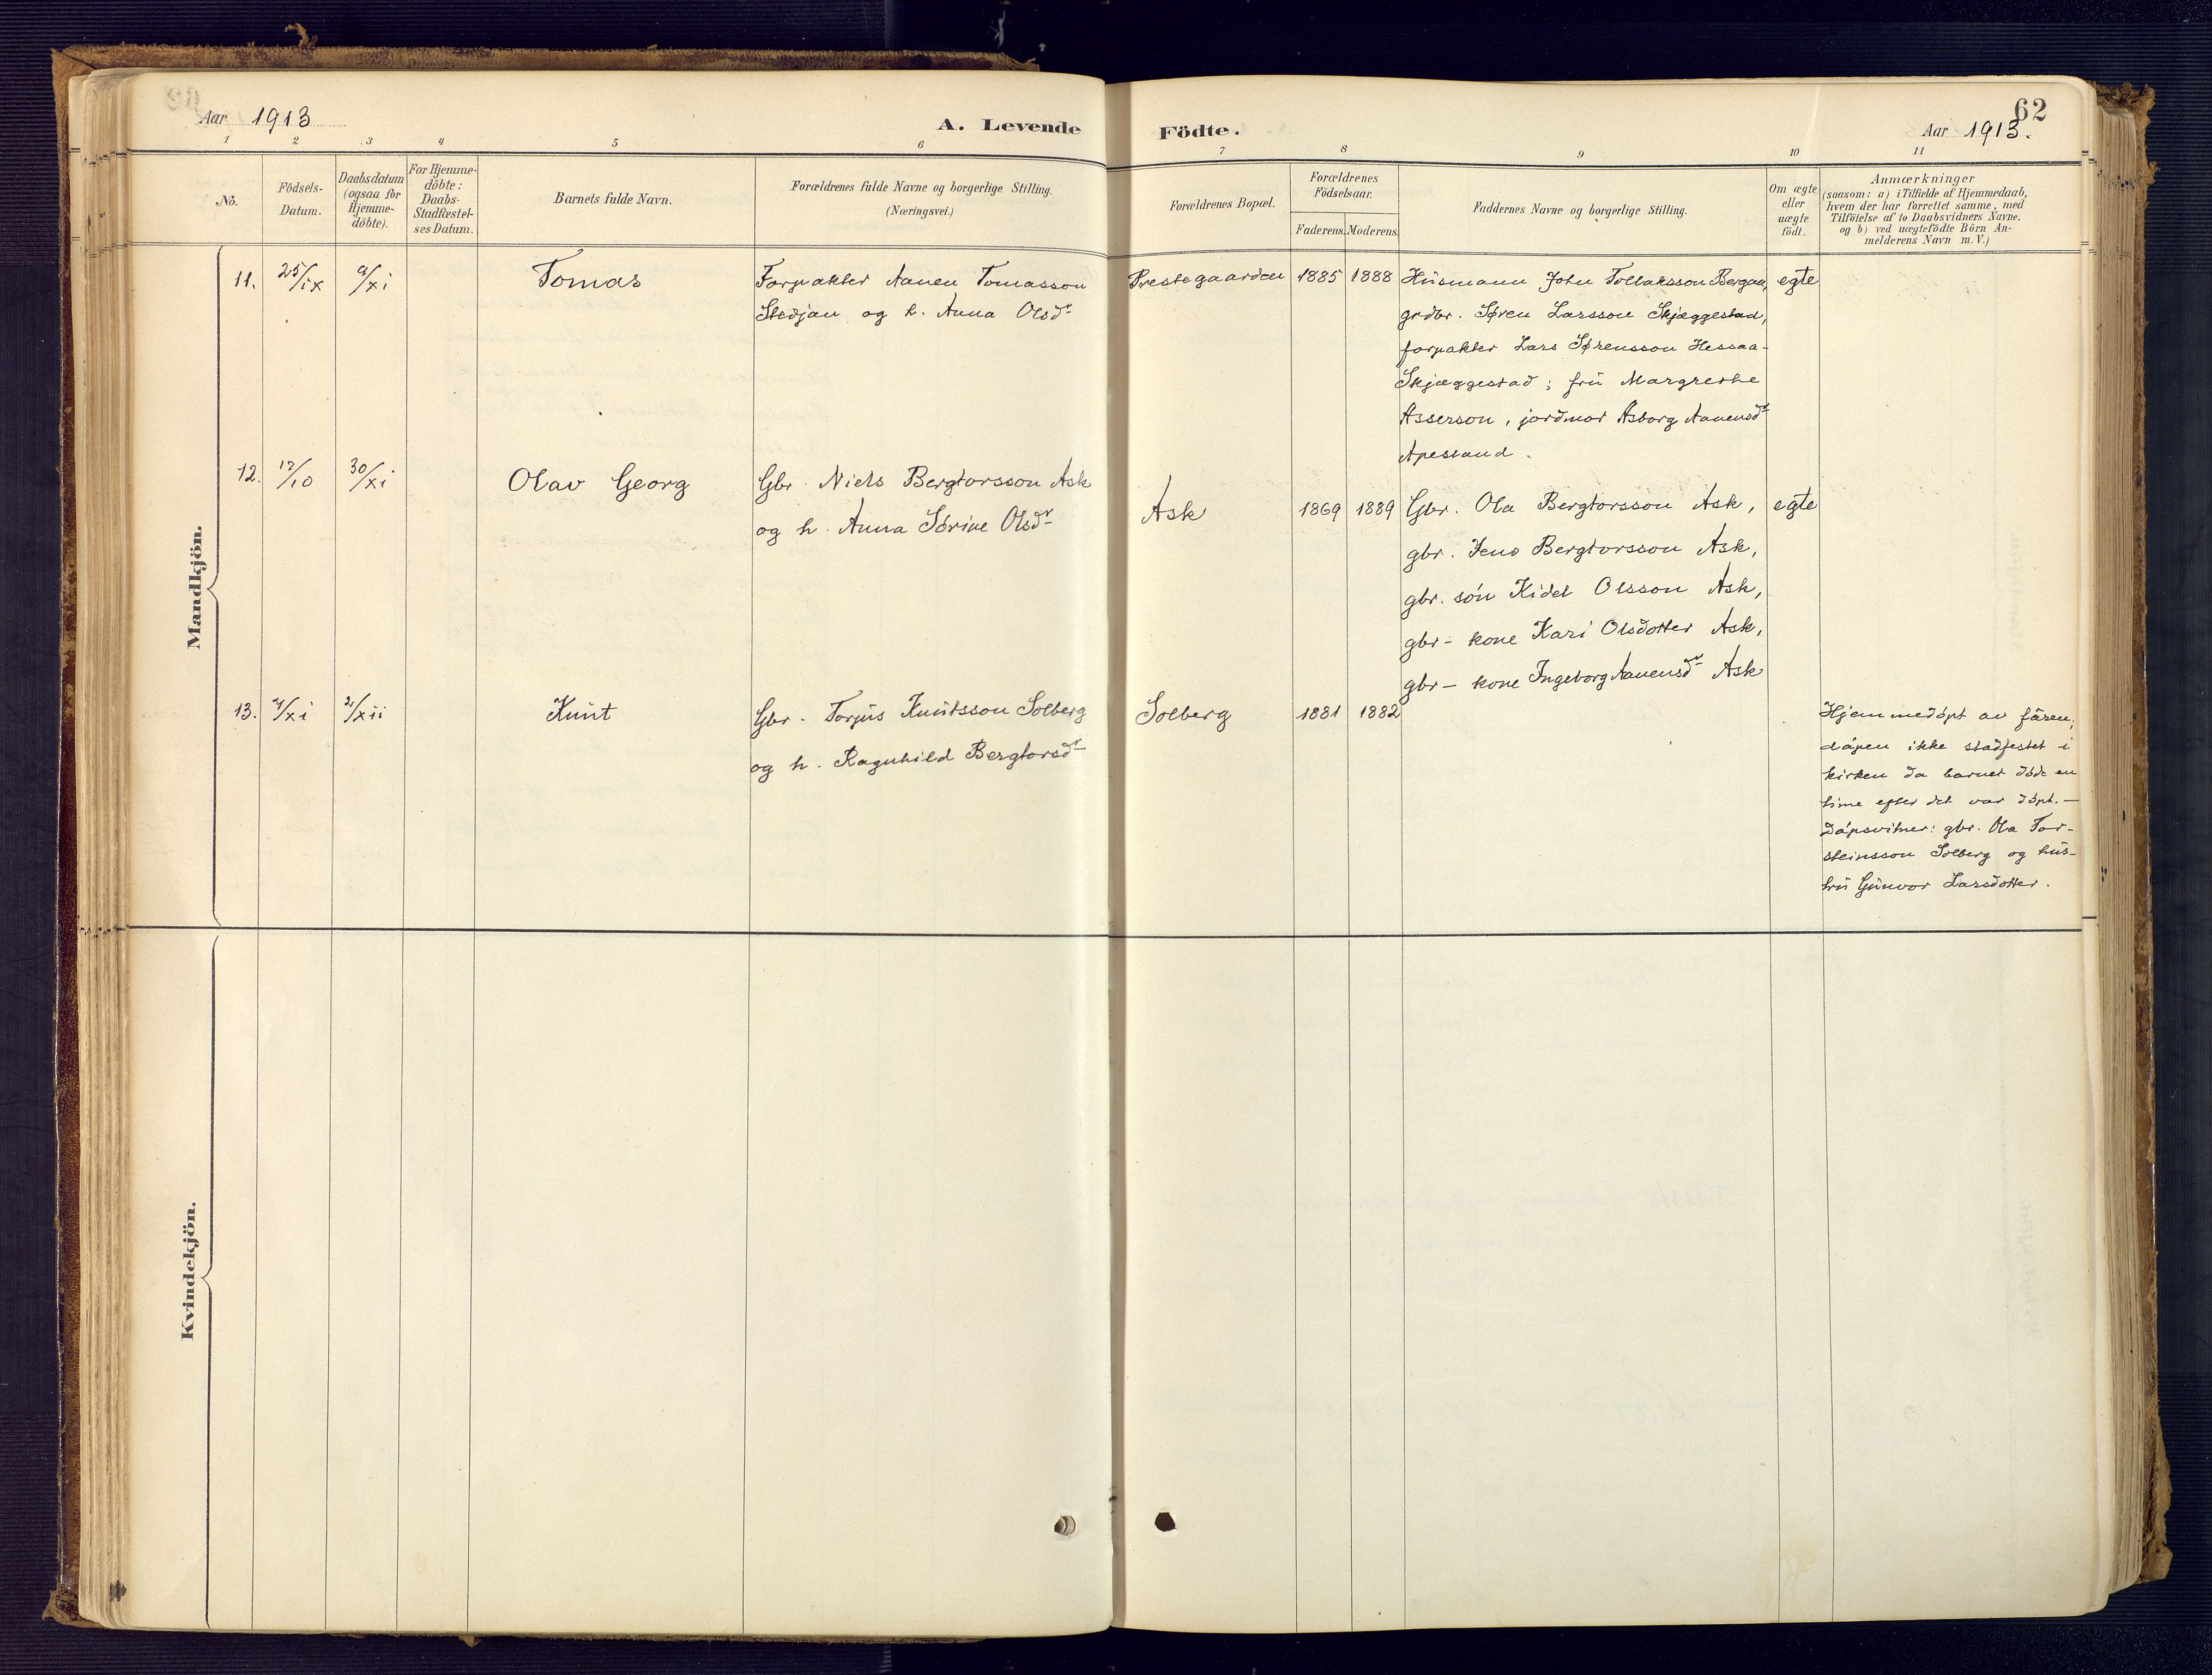 62
Aar 1913
A. Levende Födte.
Aar 1913.
1 2 3 4 5 6 7 8 9 10 11
No.
Födsels-
Datum.
Daabsdatum
(ogsaa for
Hjemme-
döbte).
For Hjemme-
döbte:
Daabs-
Stadfæstel-
ses Datum.
Barnets fulde Navn.
Forældrenes fulde Navne og borgerlige Stilling.
(Næringsvei.)
Forældrenes Bopæl.
Forældrenes
Födselsaar.
Faderens. Moderens.
Faddernes Navne og borgerlige Stilling.
Om ægte
eller
uægte
födt.
Anmærkninger
(saasom: a) i Tilfælde af Hjemmedaab,
hvem der har forrettet samme, med
Tilföielse af to Daabsvidners Navne,
og b) ved uægtefödte Börn An-
melderens Navn m. V.)
Mandkjön.
11. 25/ix 9/xi Tomas
Forpakter Aanen Tomasson
Stedjan og h. Anna Olsdr
Prestegaarden 1885 1888
Husmann John Tollaksson Bergaa,
grdbr. Søren Larsson Skjæggestad,
forpakter Lars Sørensson Hessaa-
Skjæggestad; fru Margrethe
Asserson, jordmor Åsborg Aanensdr
Apestand.
egte
12. 12/10 30/xi Olav Georg
Gbr. Niels Bergtorsson Ask
og h. Anna Sörine Olsdr
Ask 1869 1889
Gbr. Ola Bergtorsson Ask,
gbr. Jens Bergtorsson Ask,
gbr. søn Kidel Olsson Ask,
gbr- kone Kari Olsdotter Ask,
gbr- kone Ingeborg Aanensdr Ask
egte
13. /xi 2/xii Knut
Gbr. Torjus Knutsson Solberg
og h. Ragnhild Bergtorsdr
Solberg 1881 1882
Hjemmedøpt av faren;
dåpen ikke stadfestet i
kirken da barnet døde en
time efter det var døpt.—
Dåpsvitner: gbr. Ola Tor-
steinsson Solberg og hus-
tru Gunvor Larsdotter.
Kvindekjön.